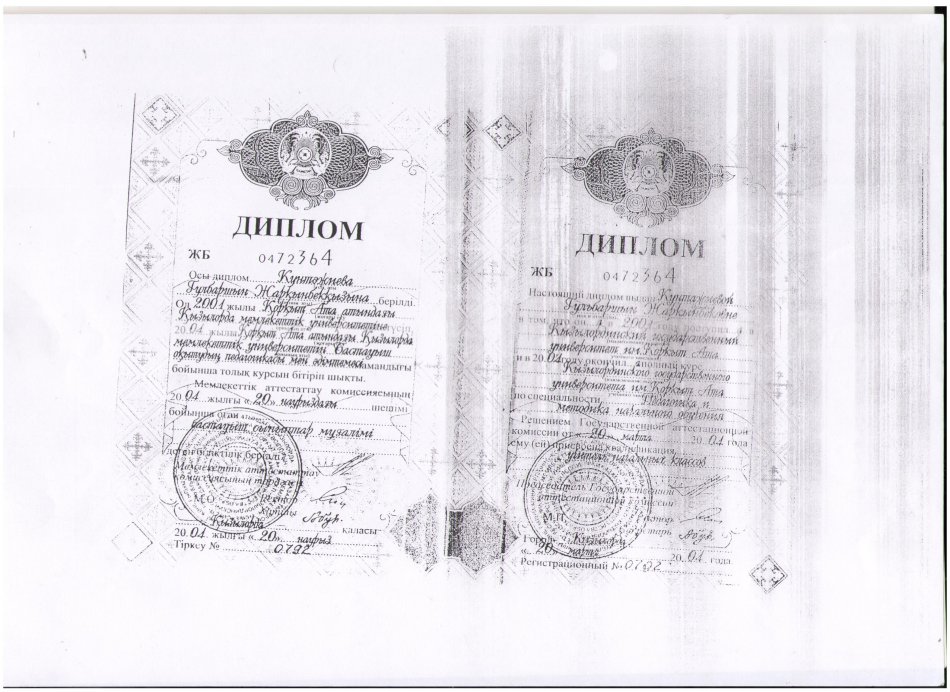 ДИПЛОМ
ЖБ 0472364
Осы диплом Кунтожиева
Гулбаршын Жаркынбекқызына берілді.
Ол 2001 жылы Қорқыт Ата атындағы
Қызылорда мемлекеттік университетіне түсіп,
20 01 жылы Қорқыт Ата атындағы Қызылорда
мемлекеттік университетін бастауыш
оқытудың педагогикасы мен әдістемесі мамандығы
бойынша толық курсын бітіріп шықты.
Мемлекеттік аттестаттау комиссиясының
20 01 жылғы « 20 » наурыздағы шешімі
бойынша оған
бастауыш сыныптар мұғалімі
деген біліктілік берілді
Мемлекеттік аттестаттау
комиссиясының төрағасы
М.О. Ректор
Қызылорда қаласы
20 01 жылғы « 20 » наурыз
Тіркеу № 0792
ДИПЛОМ
ЖБ 0472364
Настоящий диплом выдан Кунтожиевой
Гульбаршын Жаркынбековне
в том, что он в 2001 году
Кызылординский государственный
университет им. Коркыт Ата
и в 20 01 году окончил полный курс
Кызылординского государственного
университета им. Коркыт Ата
по специальности Педагогика и
методика начального обучения
Решением Государственной аттестационной
комиссии от « 20 » марта 20 01 года
ему (ей) присвоена квалификация
учитель начальных классов
Председатель Государственной
аттестационной комиссии
М.П. Ректор
Секретарь
Город Кызылорда
« 20 » марта 20 01 года
Регистрационный № 0792